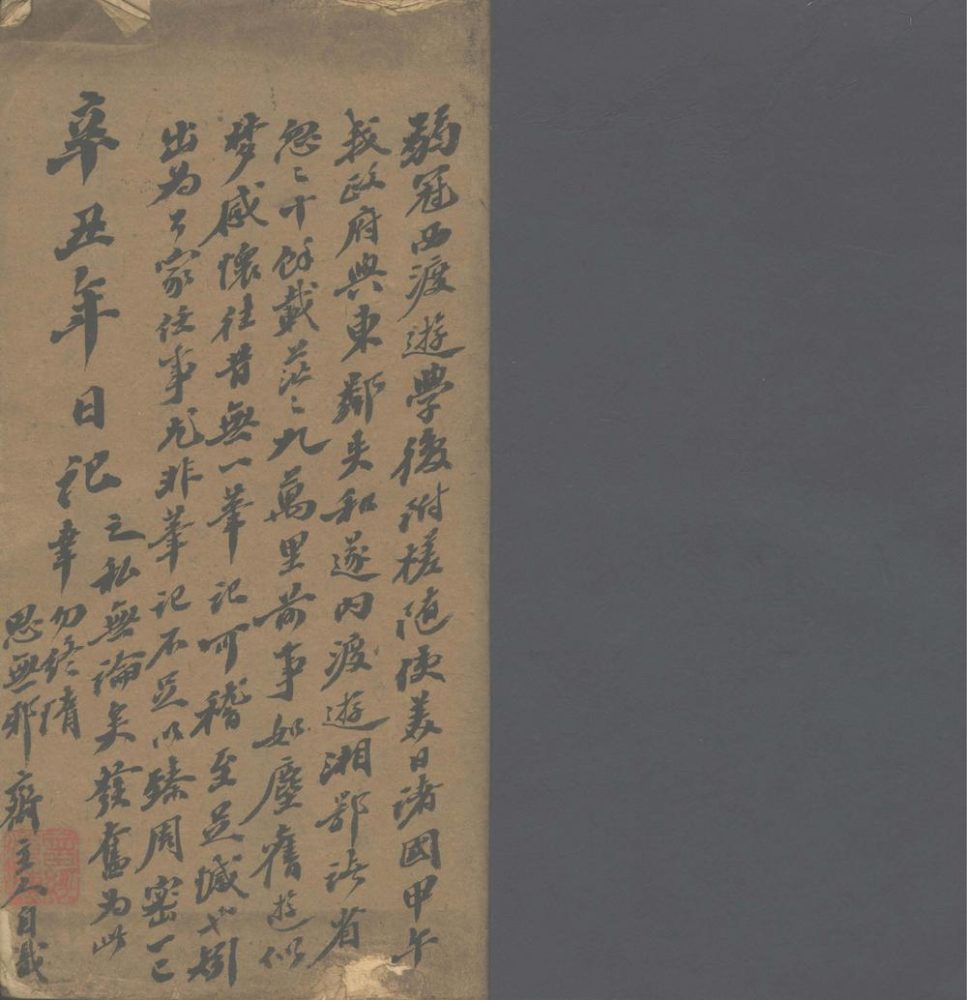 弱冠西渡遊學後附槎随使美日諸國甲午
我政府與東鄰失和遂内渡遊湘鄂諸省
忽々十餘載茫々九萬里前事如塵舊遊似
梦感懷往昔無一筆記可稽至足憾也矧
出為公家任事尤非筆記不足以臻周密一己
之私無論矣發奮為此
辛丑年日記幸勿終隋
思無邪齋主人自識